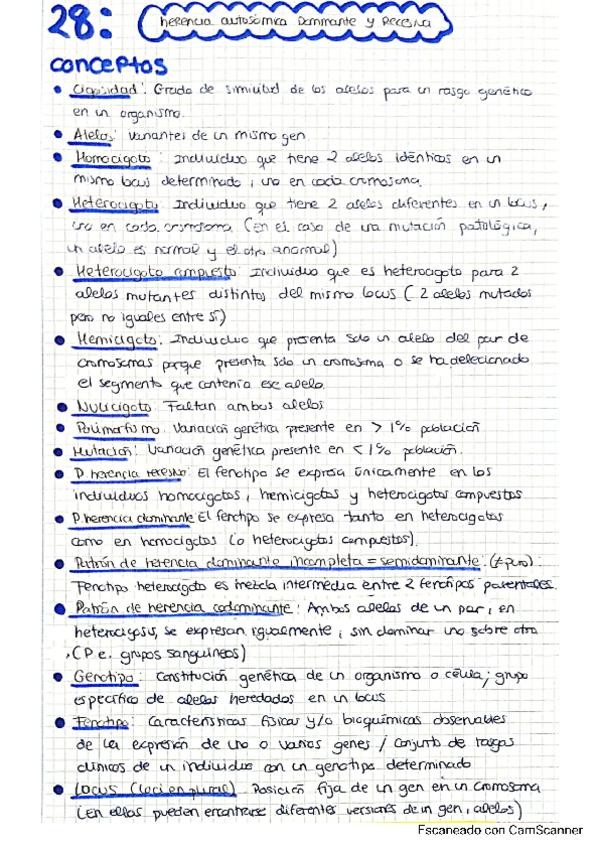 28: herencia autosómica Dominante y Recesiva
conceptos
• Cigosidad: Grado de similitud de los alelos para un rasgo genético
en un organismo.
• Alelos: Variantes de un mismo gen
• Homocigoto: Individuo que tiene 2 alelos idénticos en un
mismo locus determinado, uno en cada cromosoma.
• Heterocigoto: Individuo que tiene 2 alelos diferentes en un locus,
uno en cada cromosoma (en el caso de una mutación patológica,
un alelo es normal y el otro anormal)
• Heterocigoto compuesto: Individuo que es heterocigoto para 2
alelos mutantes distintos del mismo locus (2 alelos mutados
pero no iguales entre sí)
• Hemicigoto: Individuo que presenta solo un alelo del par de
cromosomas porque presenta solo un cromosoma o se ha delecionado
el segmento que contenía ese alelo.
• Nulicigoto: Faltan ambos alelos
• Polimorfismo: Variación genética presente en > 1% población
• Mutación: Variación genética presente en < 1% población.
• P herencia recesivo: El fenotipo se expresa únicamente en los
individuos homocigotos, hemicigotos y heterocigotos compuestos
• P. herencia dominante: El fenotipo se expresa tanto en heterocigotos
como en homocigotos (o heterocigotos compuestos).
• Patrón de herencia dominante incompleta = semidominante:
Fenotipo heterocigoto es mezcla intermedia entre 2 fenotipos parentales.
• Patrón de herencia codominante: Ambos alelos de un par, en
heterocigosis, se expresan igualmente, sin dominar uno sobre otro
(P.e. grupos sanguíneos)
• Genotipo: Constitución genética de un organismo o célula; grupo
específico de alelos heredados en un locus
• Fenotipo: Características físicas y/o bioquímicas observables
de la expresión de uno o varios genes / Conjunto de rasgos
clínicos de un individuo con un genotipo determinado
• Locus (loci en plural) Posición fija de un gen en un cromosoma
(en ellas pueden encontrarse diferentes versiones de un gen, alelos)
Escaneado con CamScanner